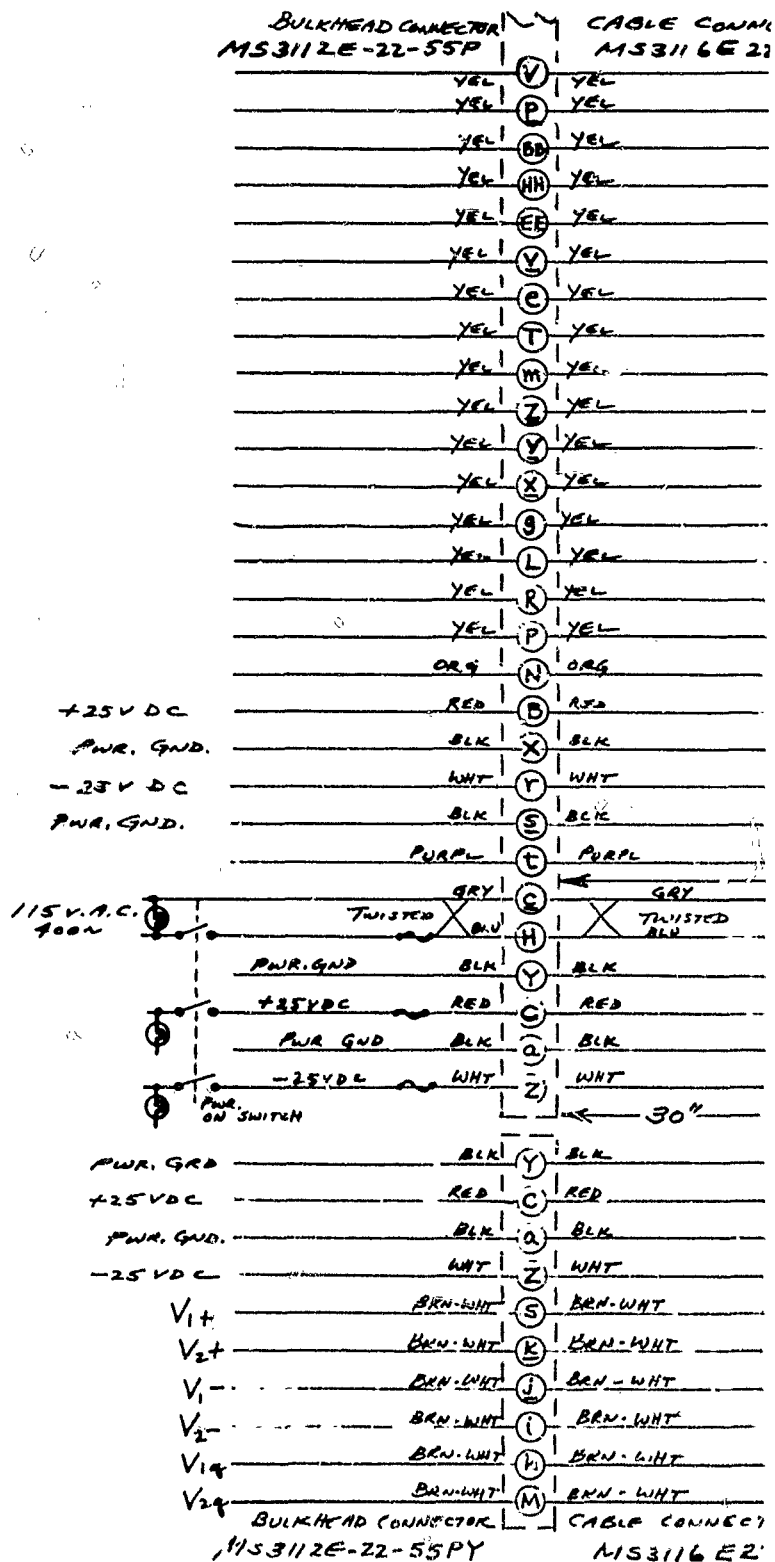 BULKHEAD CONNECTOR CABLE CONN
MS3112E-22-55P MS3116E 22
V
YEL YEL
YEL P YEL
YEL BB YEL
YEL HH YEL
YEL EE YEL
YEL V YEL
YEL e YEL
YEL T YEL
YEL m YEL
YEL Z YEL
YEL Y YEL
YEL X YEL
YEL g YEL
YEL L YEL
YEL R YEL
YEL P YEL
ORG N ORG
+25V DC RED B RED
PWR. GND. BLK X BLK
-25V DC WHT r WHT
PWR. GND. BLK s BLK
PURPL t PURPL
GRY C GRY
115 V.A.C. TWISTED BLU H TWISTED
400N BLU
PWR. GND BLK Y BLK
+25VDC RED C RED
PWR GND BLK a BLK
-25VDC WHT Z WHT
PWR. ON SWITCH 30"
PWR. GRD BLK Y BLK
+25VDC RED C RED
PWR. GND. BLK a BLK
-25VDC WHT Z WHT
V1+ BRN-WHT S BRN-WHT
V2+ BRN-WHT k BRN-WHT
V1- BRN-WHT j BRN-WHT
V2- BRN-WHT i BRN-WHT
V1q BRN-WHT h BRN-WHT
V2q BRN-WHT M BRN-WHT
BULKHEAD CONNECTOR CABLE CONNECT
MS3112E-22-55PY MS3116E2